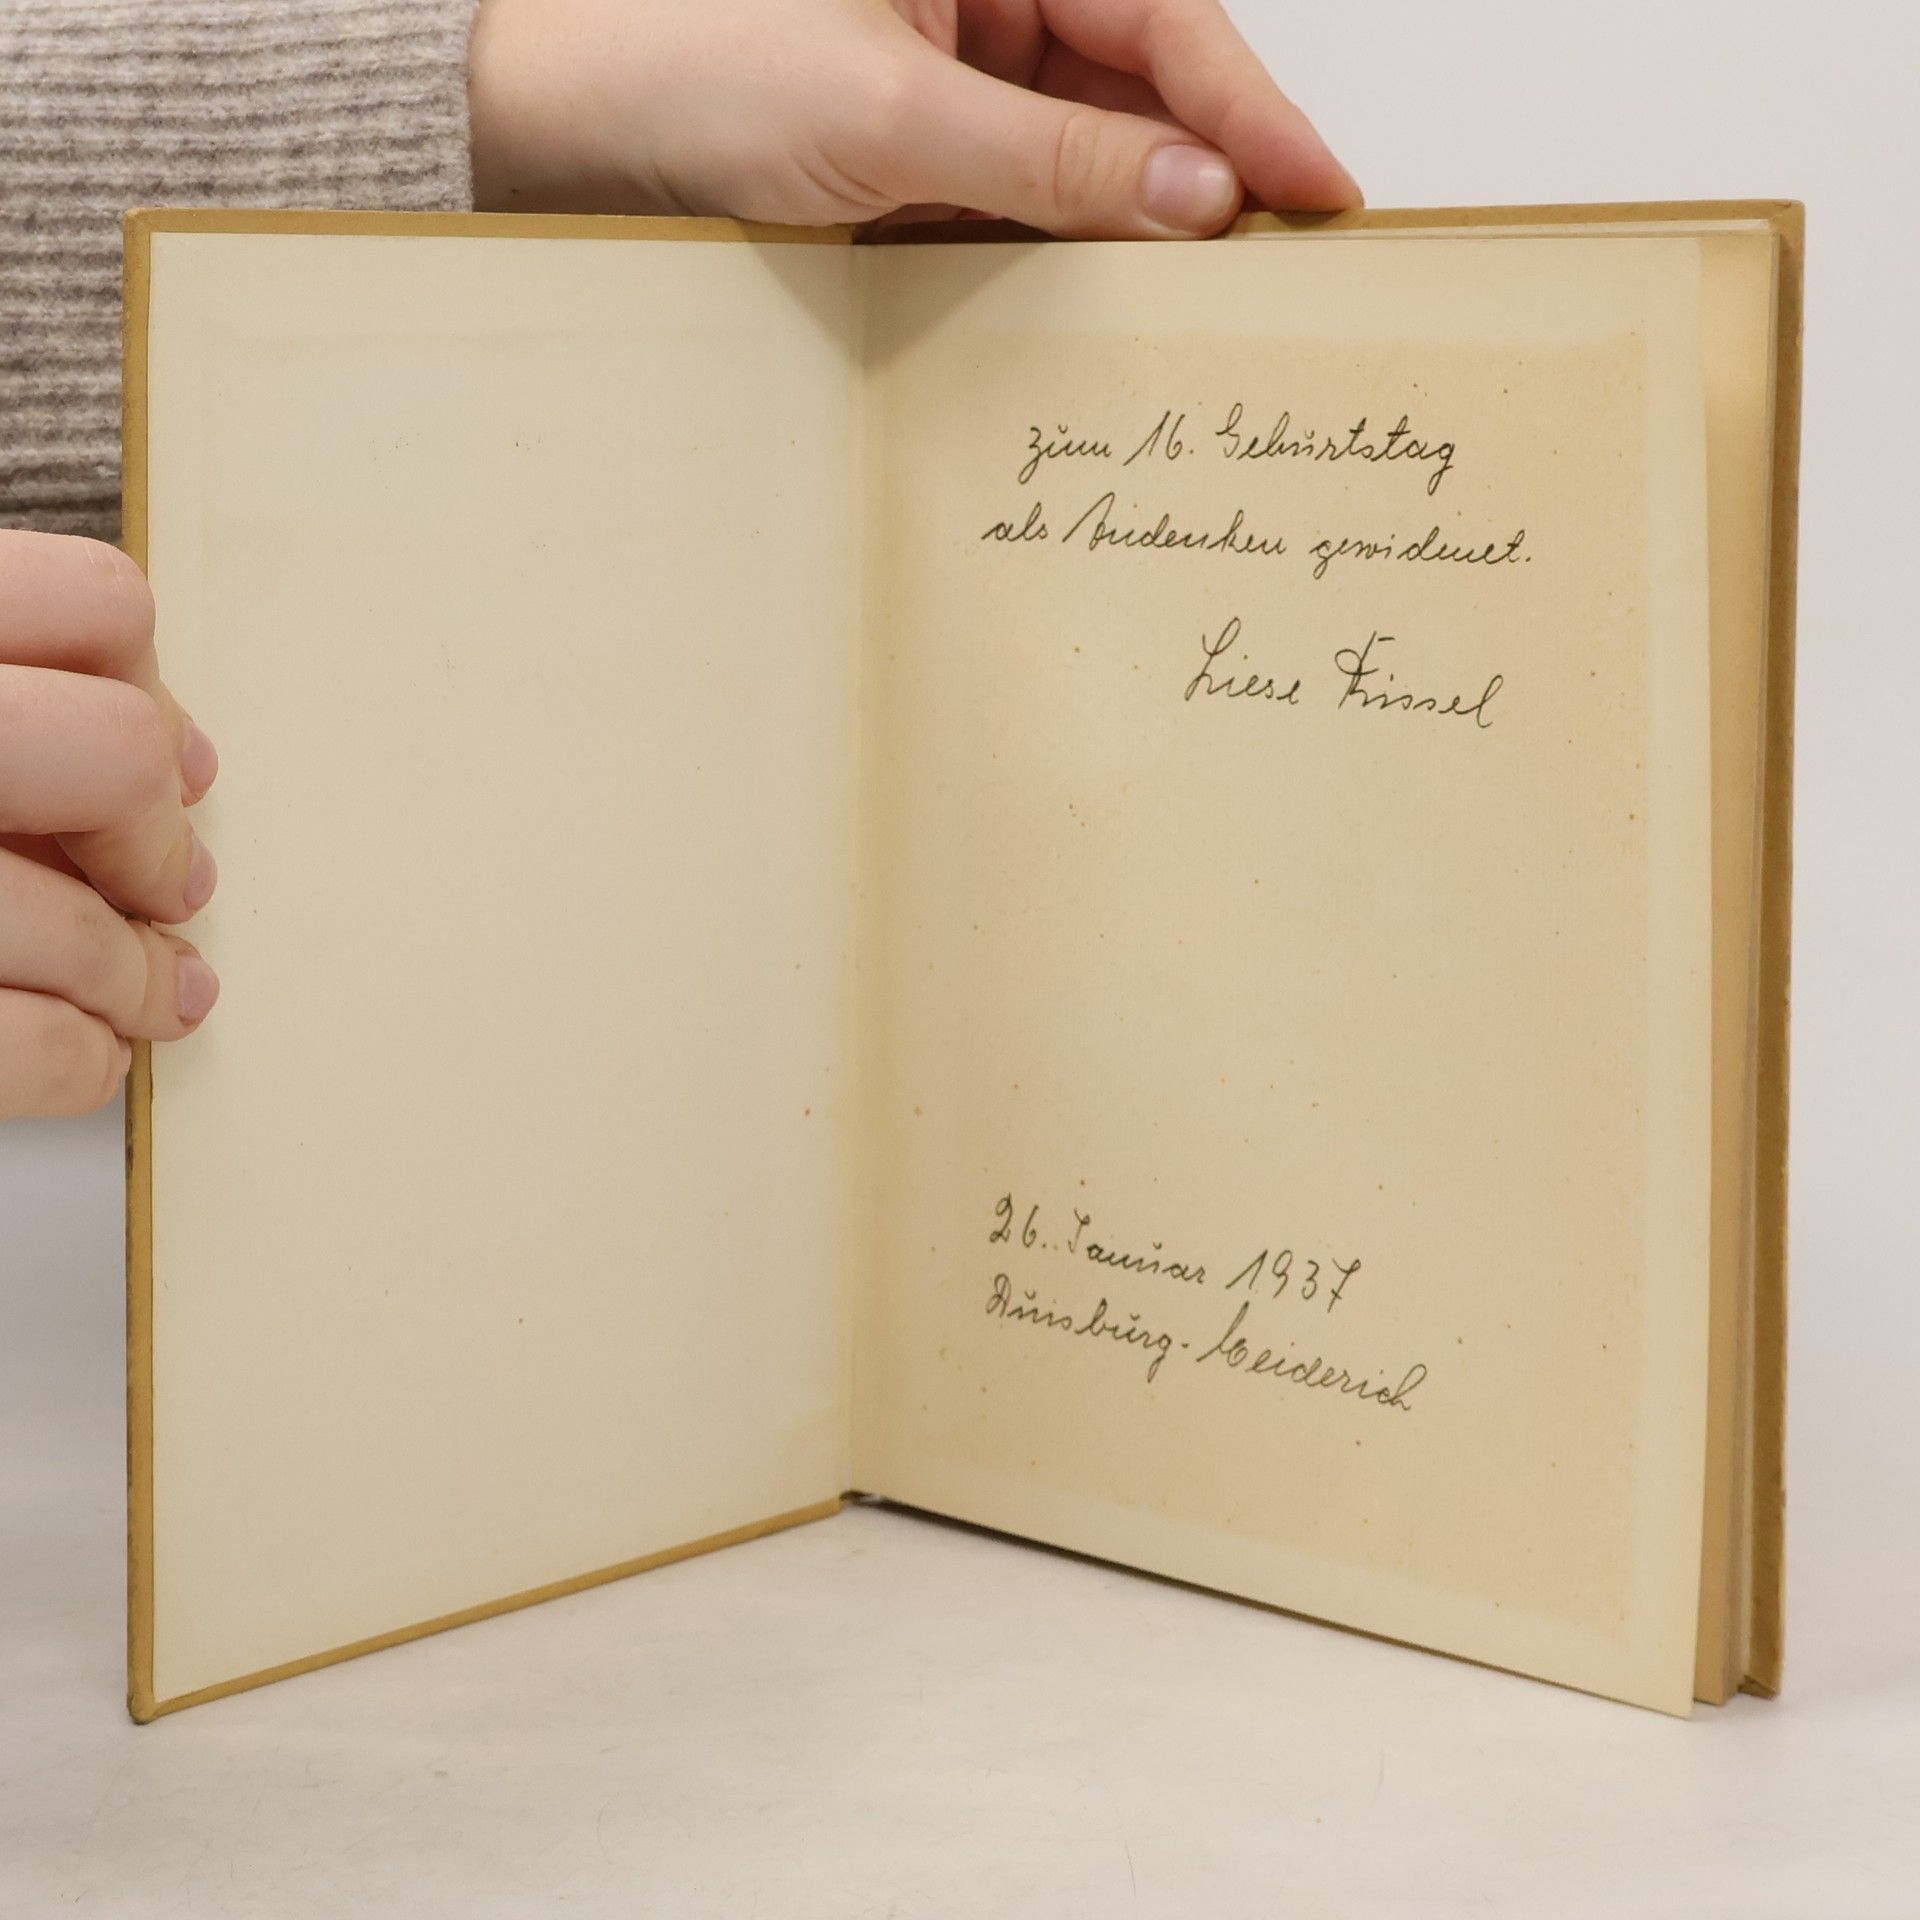 zum 16. Geburtstag
als Andenken gewidmet.
Liese
26. Januar 1937
Duisburg-Meiderich